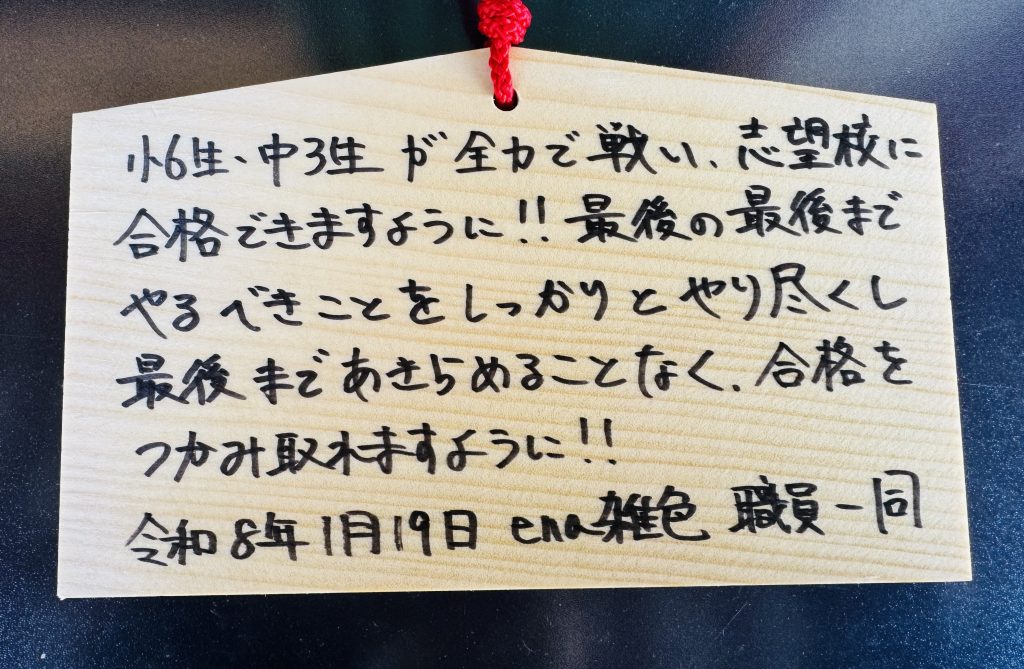 小6生・中3生 が全力で戦い、志望校に
合格できますように!! 最後の最後まで
やるべきことをしっかりとやり尽くし
最後まであきらめることなく、合格を
つかみ取れますように!!
令和8年1月19日 ena雑色 職員一同